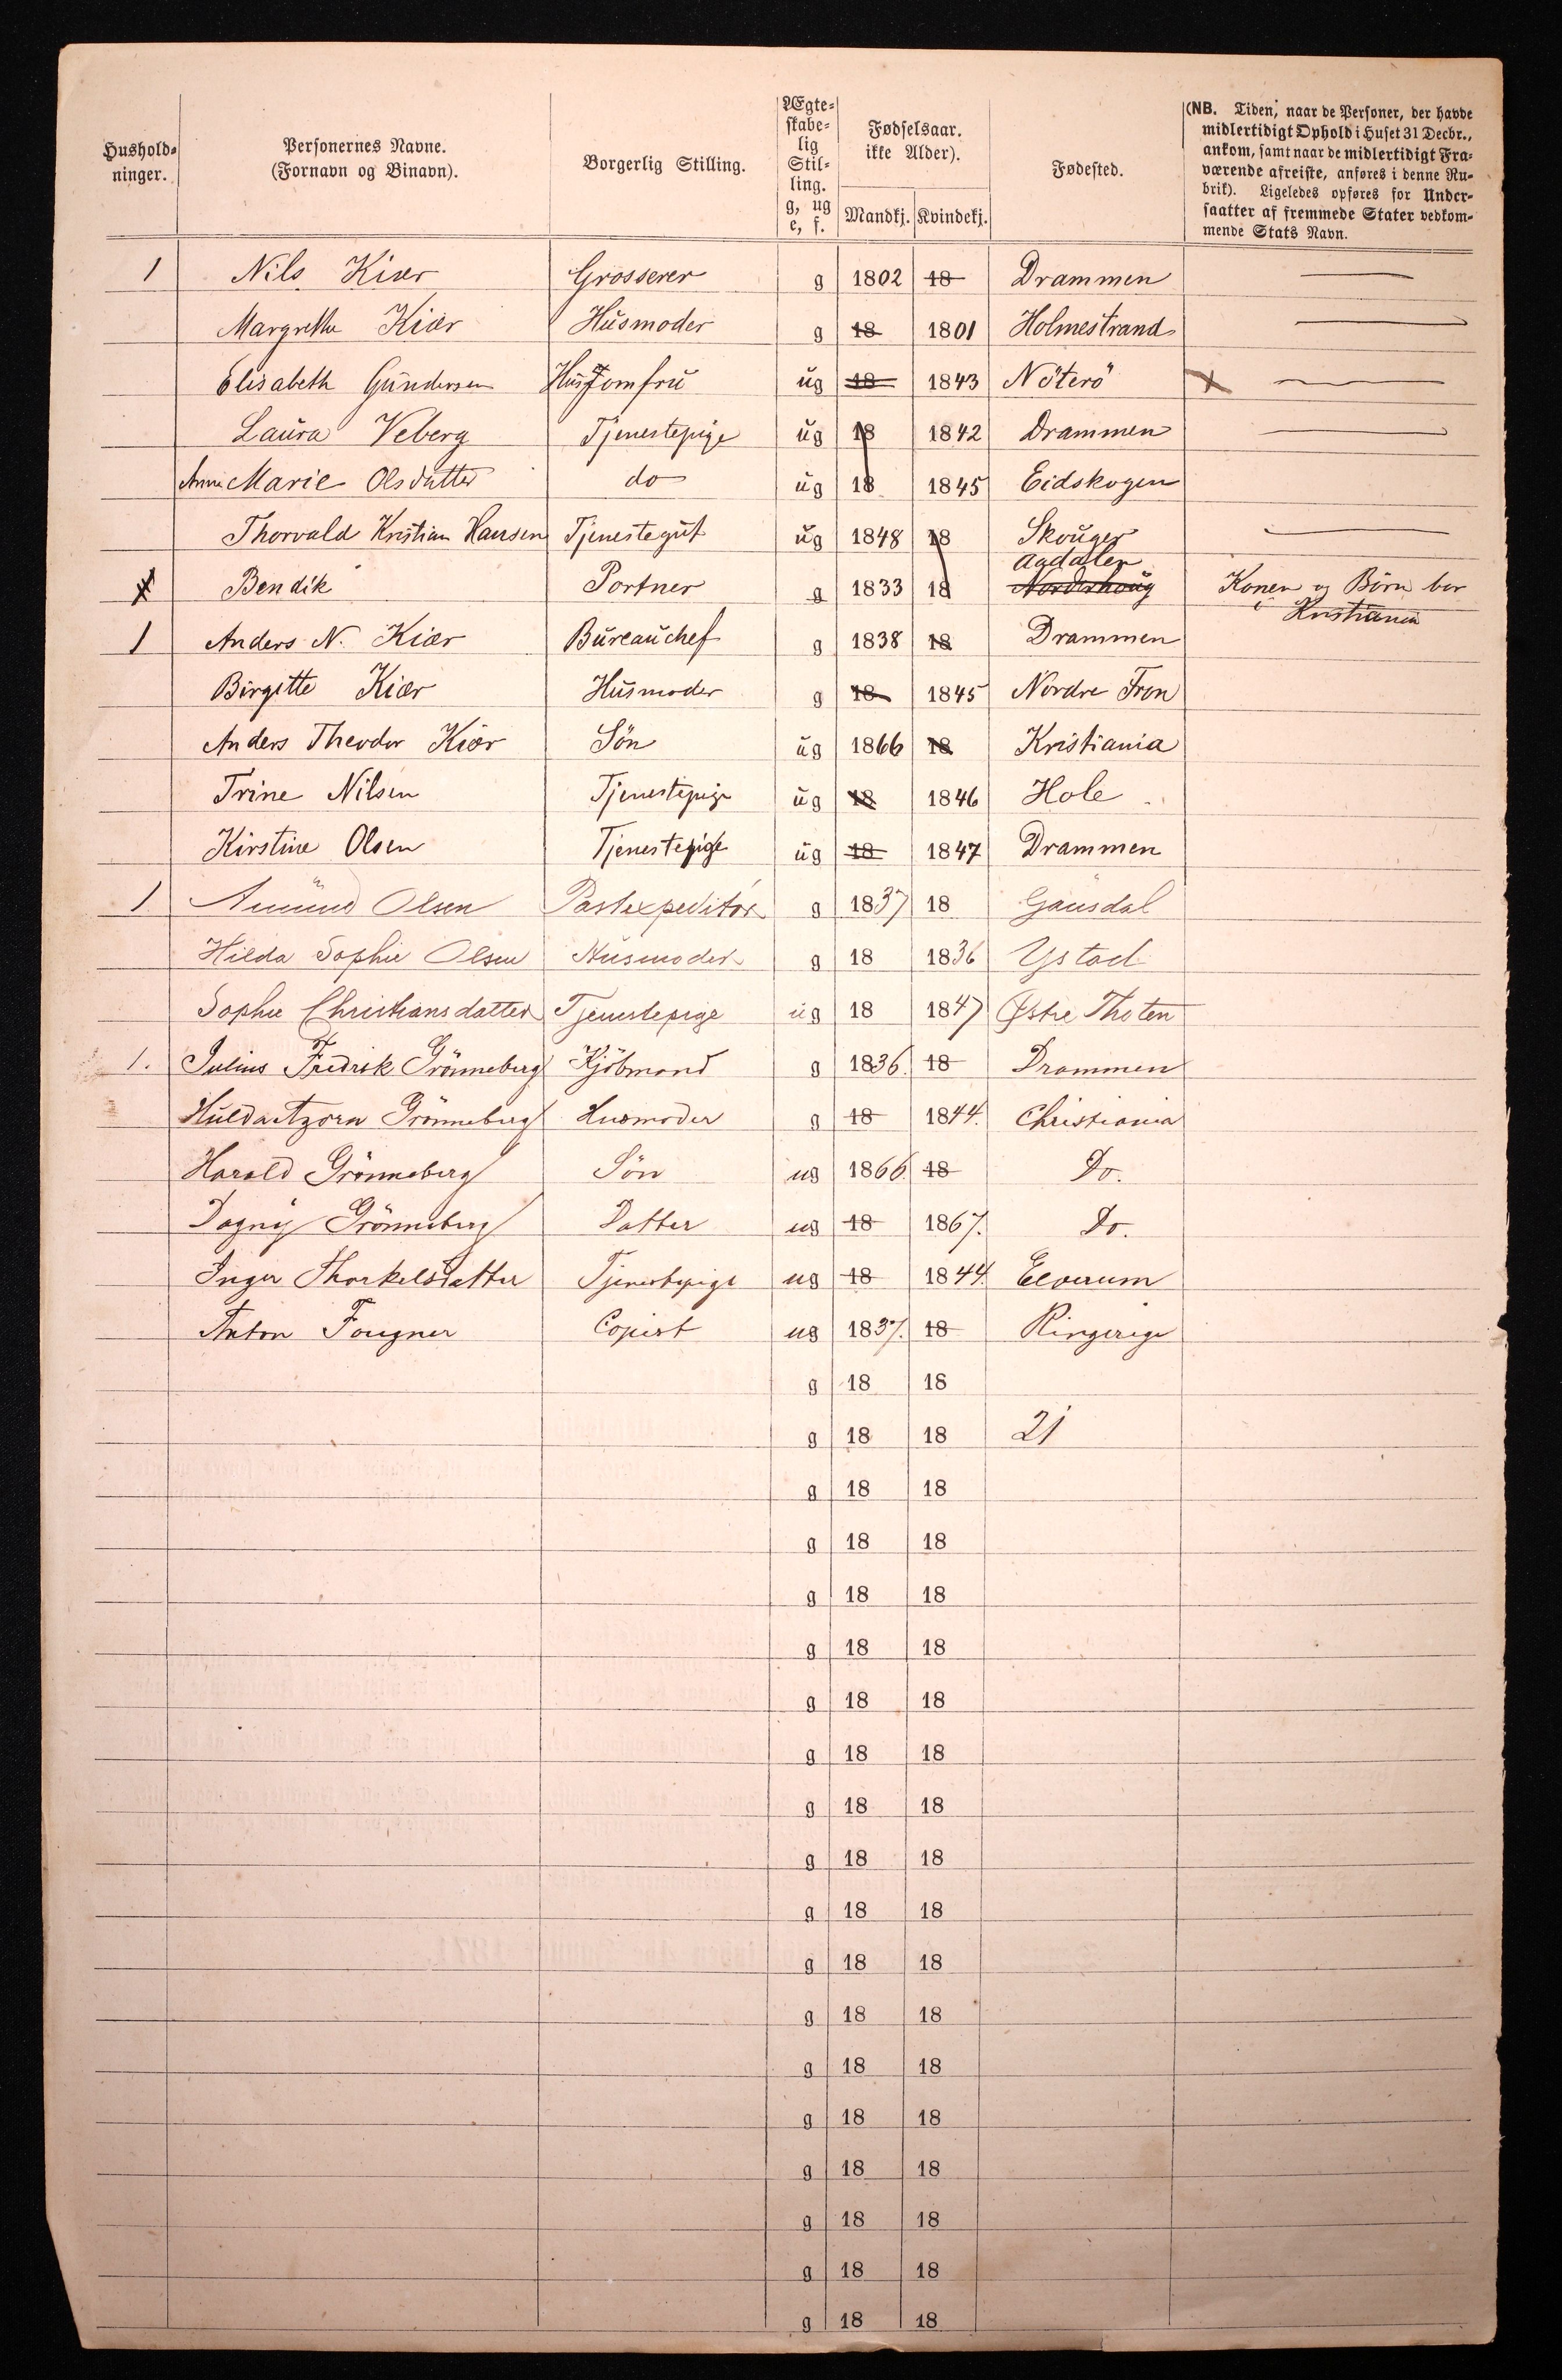 Hushold-
ninger.
Personernes Navne.
(Fornavn og Binavn).
Borgerlig Stilling.
Ægte-
skabe-
lig
Stil-
ling.
g, ug
e, f.
Fødselsaar.
ikke Alder).
Mandkj. Kvindekj.
Fødested.
(NB. Tiden, naar de Personer, der havde
midlertidigt Ophold i Huset 31 Decbr.,
ankom, samt naar de midlertidigt Fra-
værende afreiste, anføres i denne Ru-
brik). Ligeledes opføres for Under-
saatter af fremmede Stater vedkom-
mende Stats Navn.
1 Nils Kiær Grosserer g 1802 18 Drammen
Margrethe Kiær Husmoder g 18 1801 Holmestrand
Elisabeth Gundersen Husjomfru ug 18 1843 Nöterö x
Laura Veberg Tjenestepige ug 18 1842 Drammen
Anne Marie Olsdatter do ug 18 1845 Eidskogen
Thorvald Kristian Hansen Tjenestegut ug 1848 18 Skouger
Bendik Portner g 1833 18 Aadalen Norderhoug Konen og Börn bor
i Kristiania
1 Anders N. Kiær Bureauchef g 1838 18 Drammen
Birgitte Kiær Husmoder g 18 1845 Nordre Fron
Anders Theodor Kiær Sön ug 1866 18 Kristiania
Trine Nilsen Tjenestepige ug 18 1846 Hole
Kirstine Olsen Tjenestepige ug 18 1847 Drammen
1 Amund Olsen Postexpeditör g 1837 18 Gausdal
Hilda Sophie Olsen Husmoder g 18 1836 Ystad
Sophie Christiansdatter Tjenestepige ug 18 1847 Østre Thoten
1. Julius Fredrik Grönneberg Kjöbmand g 1836. 18 Drammen
Hulda Grönneberg Husmoder g 18 1844. Christiania
Harald Grönneberg Sön ug 1866. 18 Do.
Dagny Grönneberg Datter ug 18 1867. Do.
Inger Thorkelsdatter Tjenestepige ug 18 1844. Elverum
Anton Fougner Copist ug 1837. 18 Ringerige
g 18 18
g 18 18 21
g 18 18
g 18 18
g 18 18
g 18 18
g 18 18
g 18 18
g 18 18
g 18 18
g 18 18
g 18 18
g 18 18
g 18 18
g 18 18
g 18 18
g 18 18
g 18 18
g 18 18